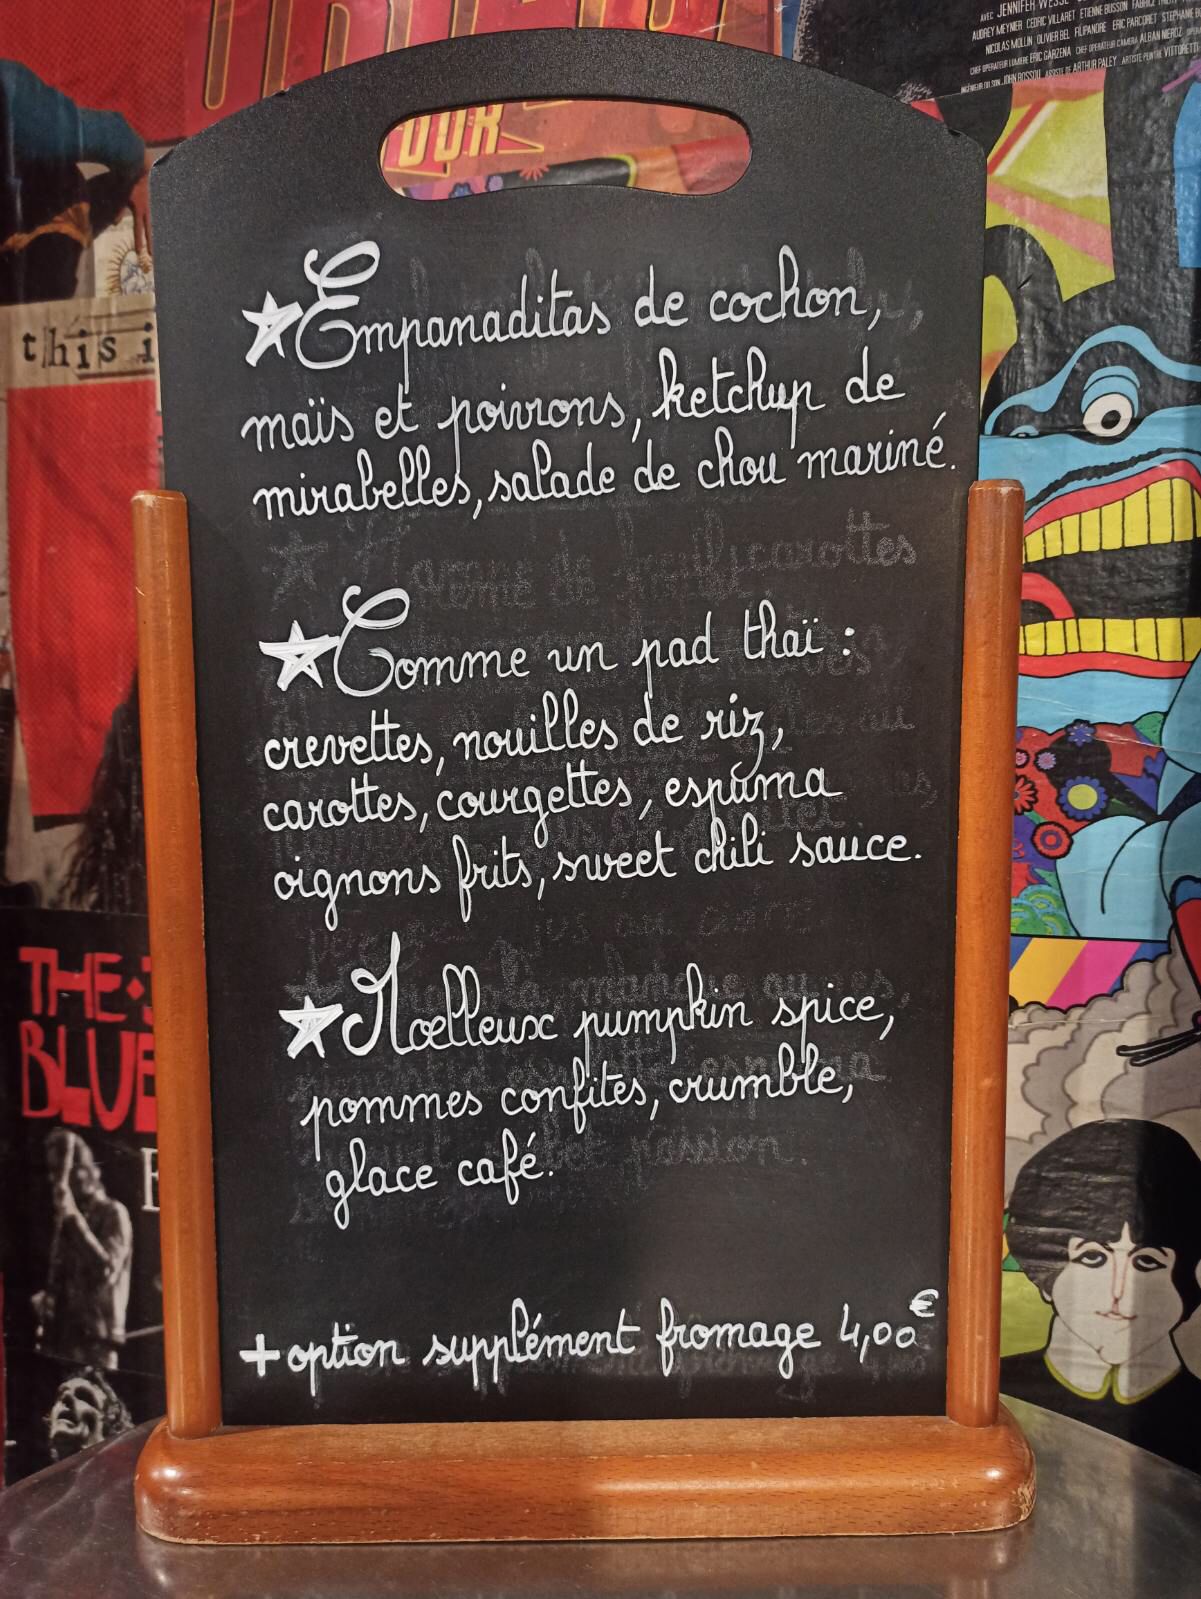 AVEC JENNIFER WESSE
AUDREY MEYNIER CEDRIC VILLARET ETIENNE BUSSON FABRICE
NICOLAS MOLLIN OLIVIER BEL FILIPANDRE ERIC PARCORET STEPHANE
CHEF OPERATEUR LUMIERE ERIC GARZENA CHEF OPERATEUR CAMERA ALBAN
JOHN BOSSOU ARTHUR PALEY ARTISTE PEINTRE
OUR
Empanaditas de cochon,
this i
maïs et poivrons, ketchup de
mirabelles, salade de chou mariné.
Comme un pad thaï :
crevettes, nouilles de riz,
carottes, courgettes, espuma
oignons frits, sweet chili sauce.
THE
BLUE
Moelleux pumpkin spice,
pommes confites, crumble,
glace café.
+ option supplément fromage 4,00€